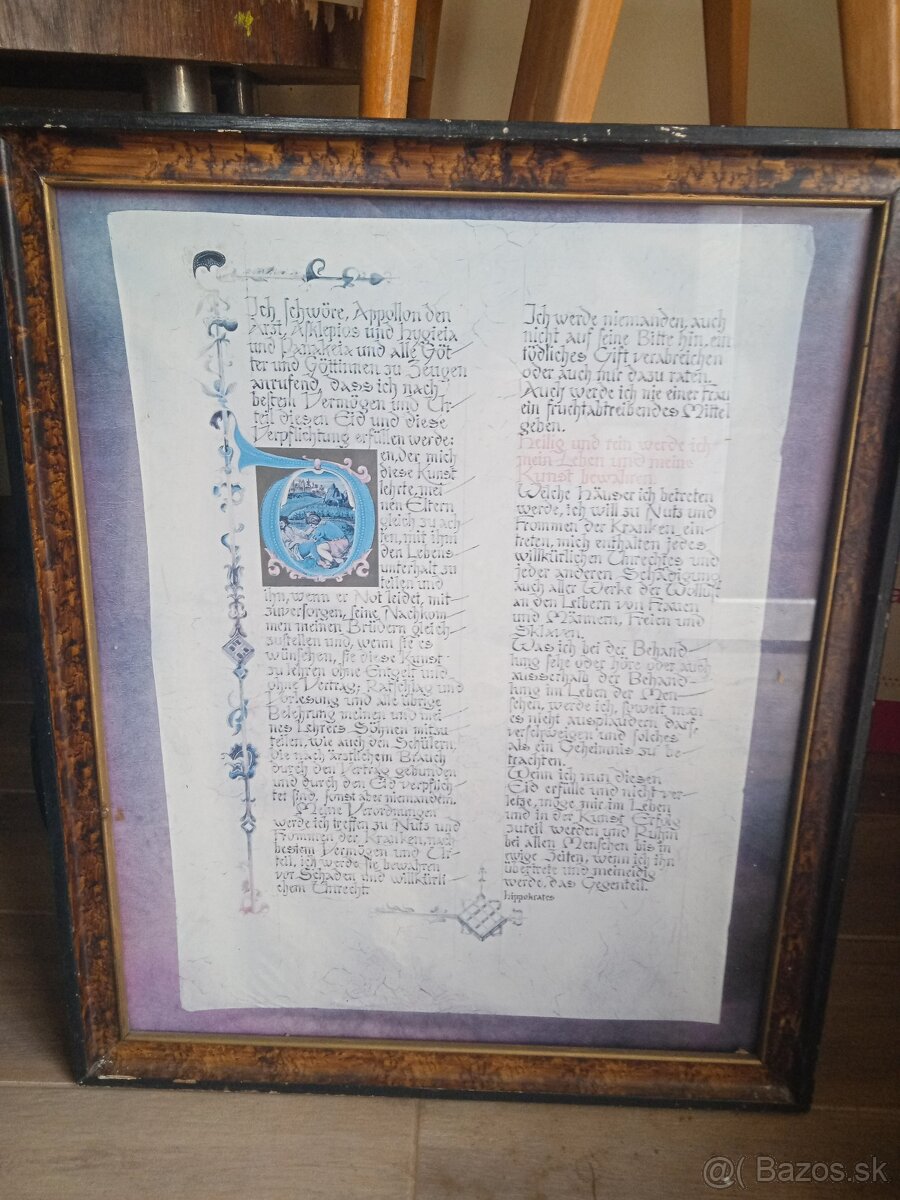 Ich schwöre, Appollon den
Arzt, Asklepios und Hygieia
und Panakeia und alle Göt-
ter und Göttinnen zu Zeugen
anrufend, dass ich nach
bestem Vermögen und Ur-
teil diesen Eid und diese
Verpflichtung erfüllen werde:
Den, der mich
diese Kunst
lehrte, mei-
nen Eltern
gleich zu ach-
ten, mit ihm
den Lebens-
unterhalt zu
teilen und
ihn, wenn er Not leidet, mit-
zuversorgen, seine Nachkom-
men meinen Brüdern gleich-
zustellen und, wenn sie es
wünschen, sie diese Kunst
zu lehren ohne Entgelt und
ohne Vertrag; Ratschlag und
Vorlesung und alle übrige
Belehrung meinen und mei-
nes Lehrers Söhnen mitzu-
teilen, wie auch den Schülern,
die nach ärztlichem Brauch
durch den Vertrag gebunden
und durch den Eid verpflich-
tet sind, sonst aber niemandem.
Meine Verordnungen
werde ich treffen zu Nutz und
Frommen der Kranken, nach
bestem Vermögen und Ur-
teil, ich werde sie bewahren
vor Schaden und willkürli-
chem Unrecht.
Ich werde niemanden, auch
nicht auf seine Bitte hin, ein
tödliches Gift verabreichen
oder auch nur dazu raten.
Auch werde ich nie einer Frau
ein fruchtabtreibendes Mittel
geben.
Heilig und rein werde ich
mein Leben und meine
Kunst bewahren.
Welche Häuser ich betreten
werde, ich will zu Nutz und
Frommen der Kranken ein-
treten, mich enthalten jedes
willkürlichen Unrechtes und
jeder anderen Schädigung,
auch aller Werke der Wollust
an den Leibern von Frauen
und Männern, Freien und
Sklaven.
Was ich bei der Behand-
lung sehe oder höre oder auch
ausserhalb der Behand-
lung im Leben der Men-
schen, werde ich, soweit man
es nicht ausplaudern darf,
verschweigen und solches
als ein Geheimnis zu be-
trachten.
Wenn ich nun diesen
Eid erfülle und nicht ver-
letze, möge mir im Leben
und in der Kunst Erfolg
zuteil werden und Ruhm
bei allen Menschen bis in
ewige Zeiten, wenn ich ihn
übertrete und meineidig
werde, das Gegenteil.
Hippokrates
@( Bazos.sk